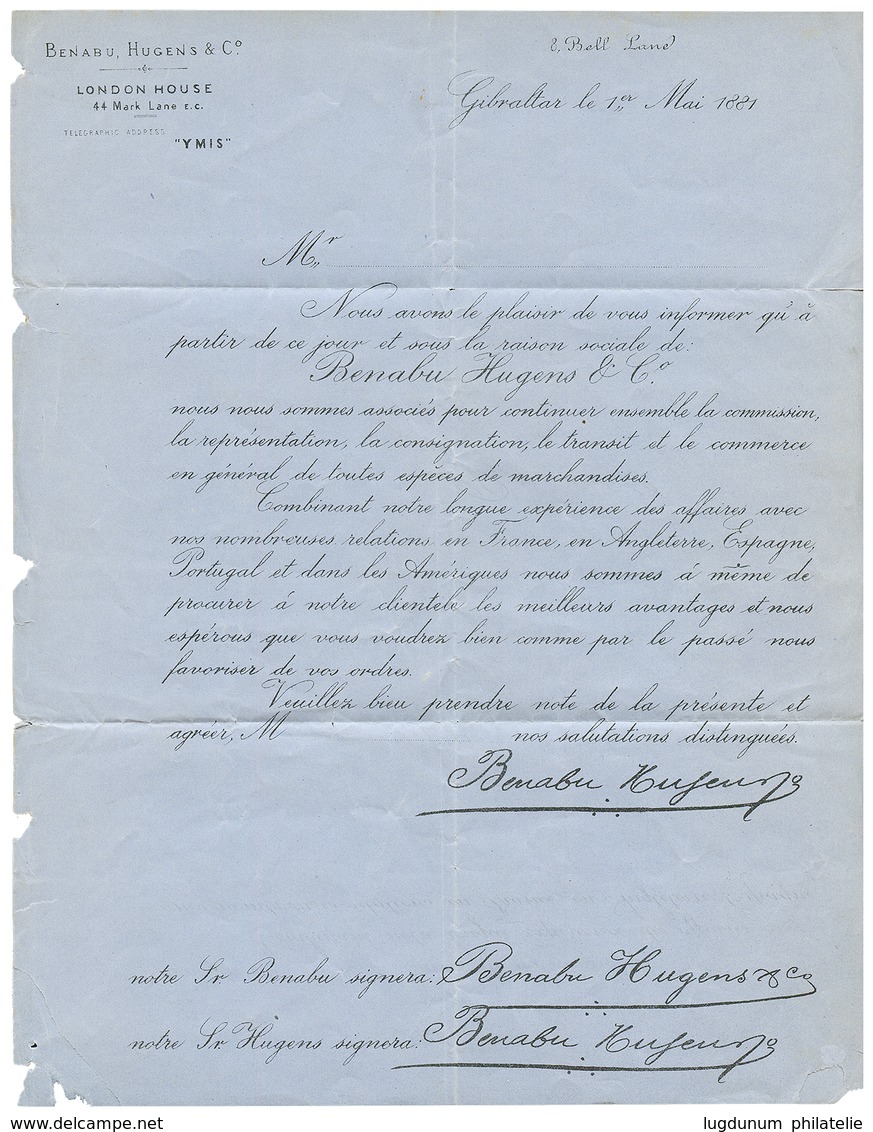 BENABU, HUGENS & Cº.
8, Bell Lane
LONDON HOUSE
44 Mark Lane E.C.
Gibraltar le 1er Mai 1881
TELEGRAPHIC ADDRESS
"YMIS"
Mr
Nous avons le plaisir de vous informer qu'à
partir de ce jour et sous la raison sociale de:
Benabu Hugens & Cº.
nous nous sommes associés pour continuer ensemble la commission,
la représentation, la consignation, le transit et le commerce
en général de toutes espèces de marchandises.
Combinant notre longue expérience des affaires avec
nos nombreuses relations en France, en Angleterre, Espagne,
Portugal et dans les Amériques nous sommes á même de
procurer á notre clientele les meilleurs avantages et nous
espérous que vous voudrez bien comme par le passé nous
favoriser de vos ordres.
Veuillez bieu prendre note de la présente et
agréer, M nos salutations distinguées.
Benabu Hugens Co
notre Sr. Benabu signera: Benabu Hugens & Co
notre Sr Hugens signera: Benabu Hugens Co
www.delcampe.net
lugdunum philatelie